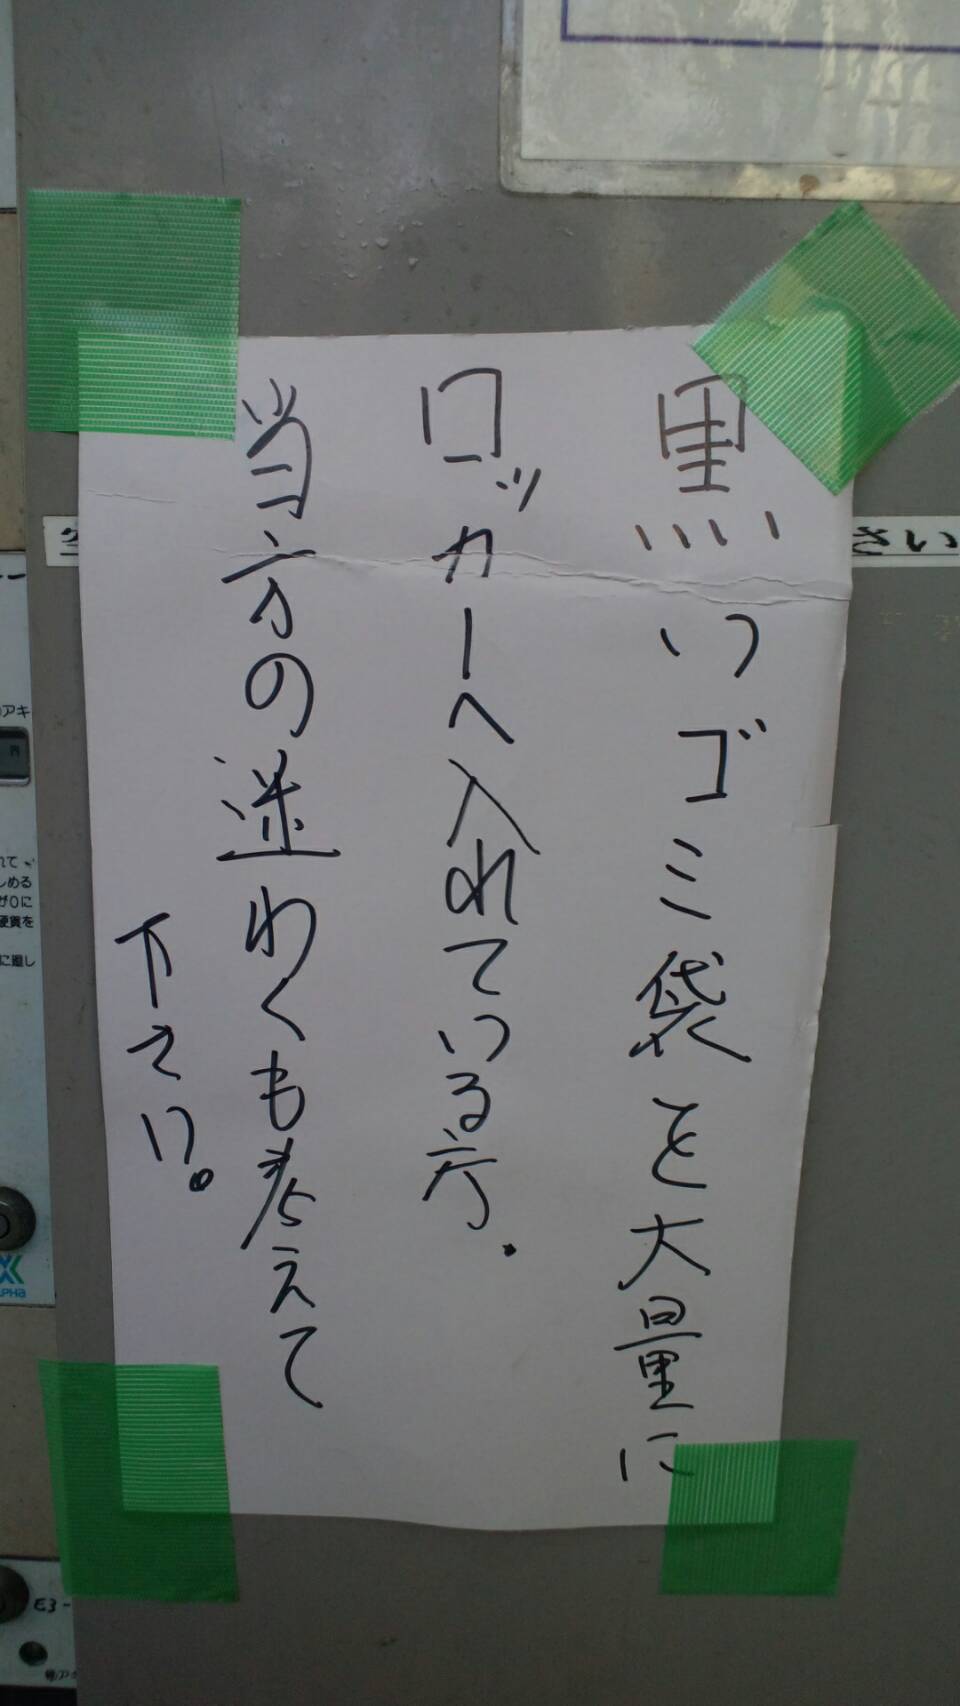 黒いゴミ袋を大量に
ロッカーへ入れている方.
当方の迷わくも考えて
下さい。
さい
アキ
しめる
が0に
硬貨を
ALPHA
E3-